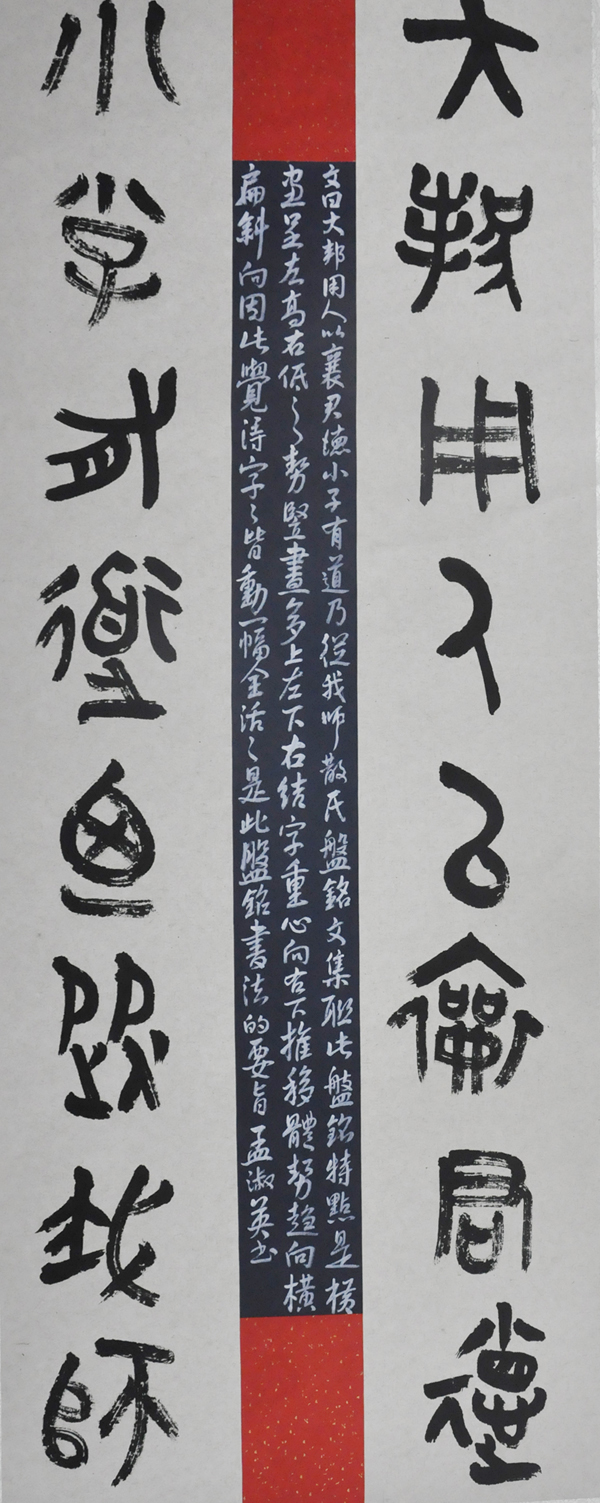 大邦用人以襄君德
文曰大邦用人以襄君德小子有道乃從我師散氏盤銘文集聯此盤銘特點是橫
畫呈左高右低之勢豎畫多上左下右結字重心向右下推移體勢趨向橫
扁斜向因此覺得字々皆動一幅全活々是此盤銘書法的要旨孟淑英書
小子有道乃從我師